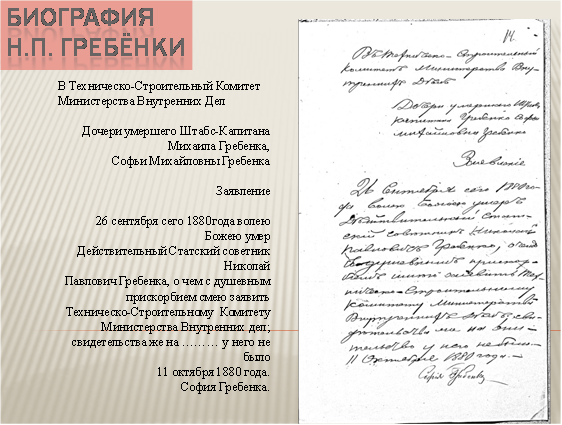 БИОГРАФИЯ
Н.П. ГРЕБЁНКИ
В Техническо-Строительный Комитет
Министерства Внутренних Дел
Дочери умершего Штабс-Капитана
Михаила Гребенка,
Софьи Михайловны Гребенка
Заявление
26 сентября сего 1880года волею
Божею умер
Действительный Статский советник
Николай
Павлович Гребенка, о чем с душевным
прискорбием смею заявить
Техническо-Строительному Комитету
Министерства Внутренних дел;
свидетельства же на ……… у него не
было
11 октября 1880 года.
София Гребенка.
14.
Въ Техническо-Строительный
Комитетъ Министерства Внут-
реннихъ Делъ
Дочери умершего Штабс-
капитана Гребенка Софьи
Михайловны Гребенка
Заявление
26 Сентября сего 1880 го-
да волею Божею умеръ
Действительный Стат-
ский советникъ Николай
Павловичъ Гребенка, о чем
Комитету Министерства
Внутреннихъ Делъ; сви-
детельства же на
у него не было.
11 Октября 1880 года.
София Гребенка